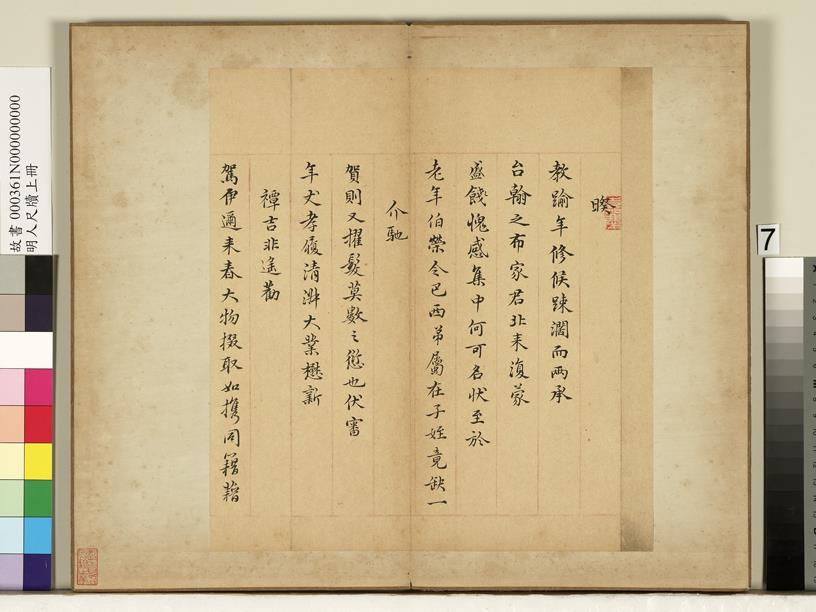 暌
教踰年修候踈濶而兩承
台翰之布家君北来復蒙
盛餞愧感集中何可名状至於
老年伯榮令巴西弟屬在子姪竟缺一
介馳
賀則又擢髮莫數之愆也伏審
年丈孝履清淋大業懋新
禫吉非遙勸
駕伊邇来春大物掇取如携同籍藉
故書 000361N000000000
明人尺牘上冊
7